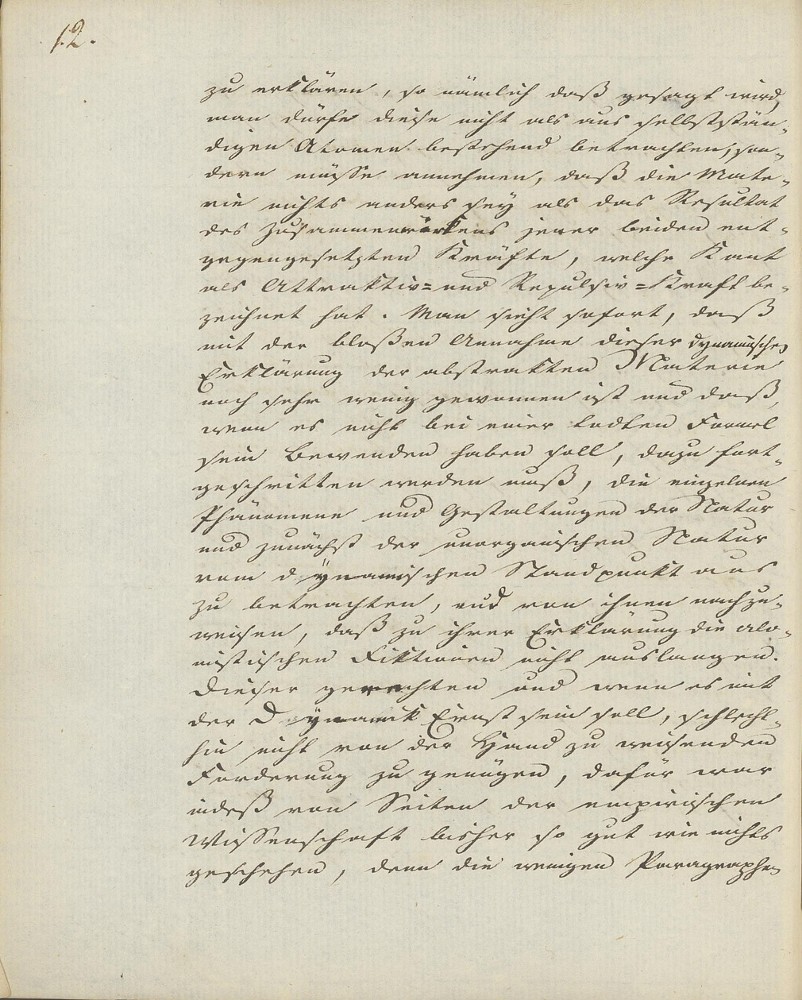 12.
zu erklären, so nämlich daß gesagt wird,
man dürfe diese nicht als aus selbststän-
digen Atomen bestehend betrachten, son-
dern müsse annehmen, daß die Mate-
rie nichts anders sey als das Resultat
des Zusammenwirkens jener beiden ent-
gegengesetzten Kräfte, welche Kant
als Attraktiv= und Repulsiv=Kraft be-
zeichnet hat. Man sieht sofort, daß
mit der bloßen Annahme dieser dynamischen
Erklärung der abstrakten Materie
noch sehr wenig gewonnen ist und daß,
wenn es nicht bei einer todten Formel
sein Bewenden haben soll, dazu fort-
geschritten werden muß, die einzelnen
Phänomene und Gestaltungen der Natur
und zunächst der unorganischen Natur
vom dynamischen Standpunkt aus
zu betrachten, und von ihnen nachzu-
weisen, daß zu ihrer Erklärung die ato-
mistischen Fiktionen nicht auslangen.
Dieser gerechten und wenn es mit
der Dynamik Ernst sein soll, schlecht-
hin nicht von der Hand zu weisenden
Forderung zu genügen, dafür war
indeß von Seiten der empirischen
Wissenschaft bisher so gut wie nichts
geschehen, denn die wenigen Paragraphen